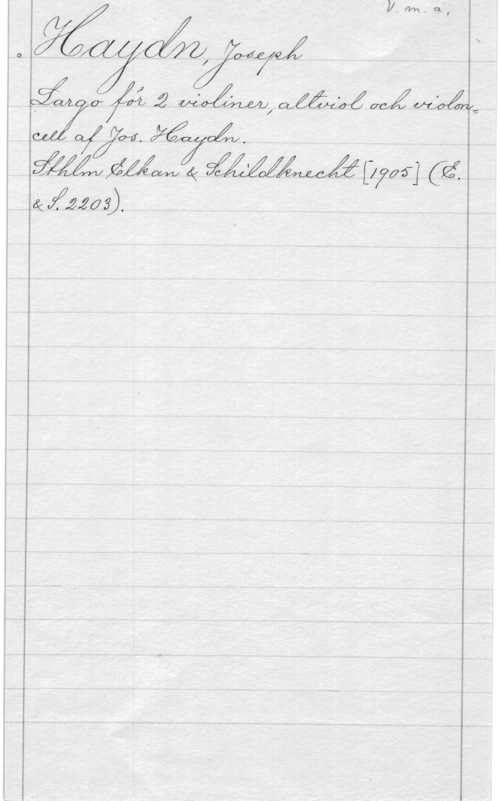 V. m. a.
Haydn, Joseph
Largo för 2 violiner, altviol och violon=
cell af Jos. Haydn.
Sthlm Elkan & Schildknecht [1905] (E.
& S. 2203).